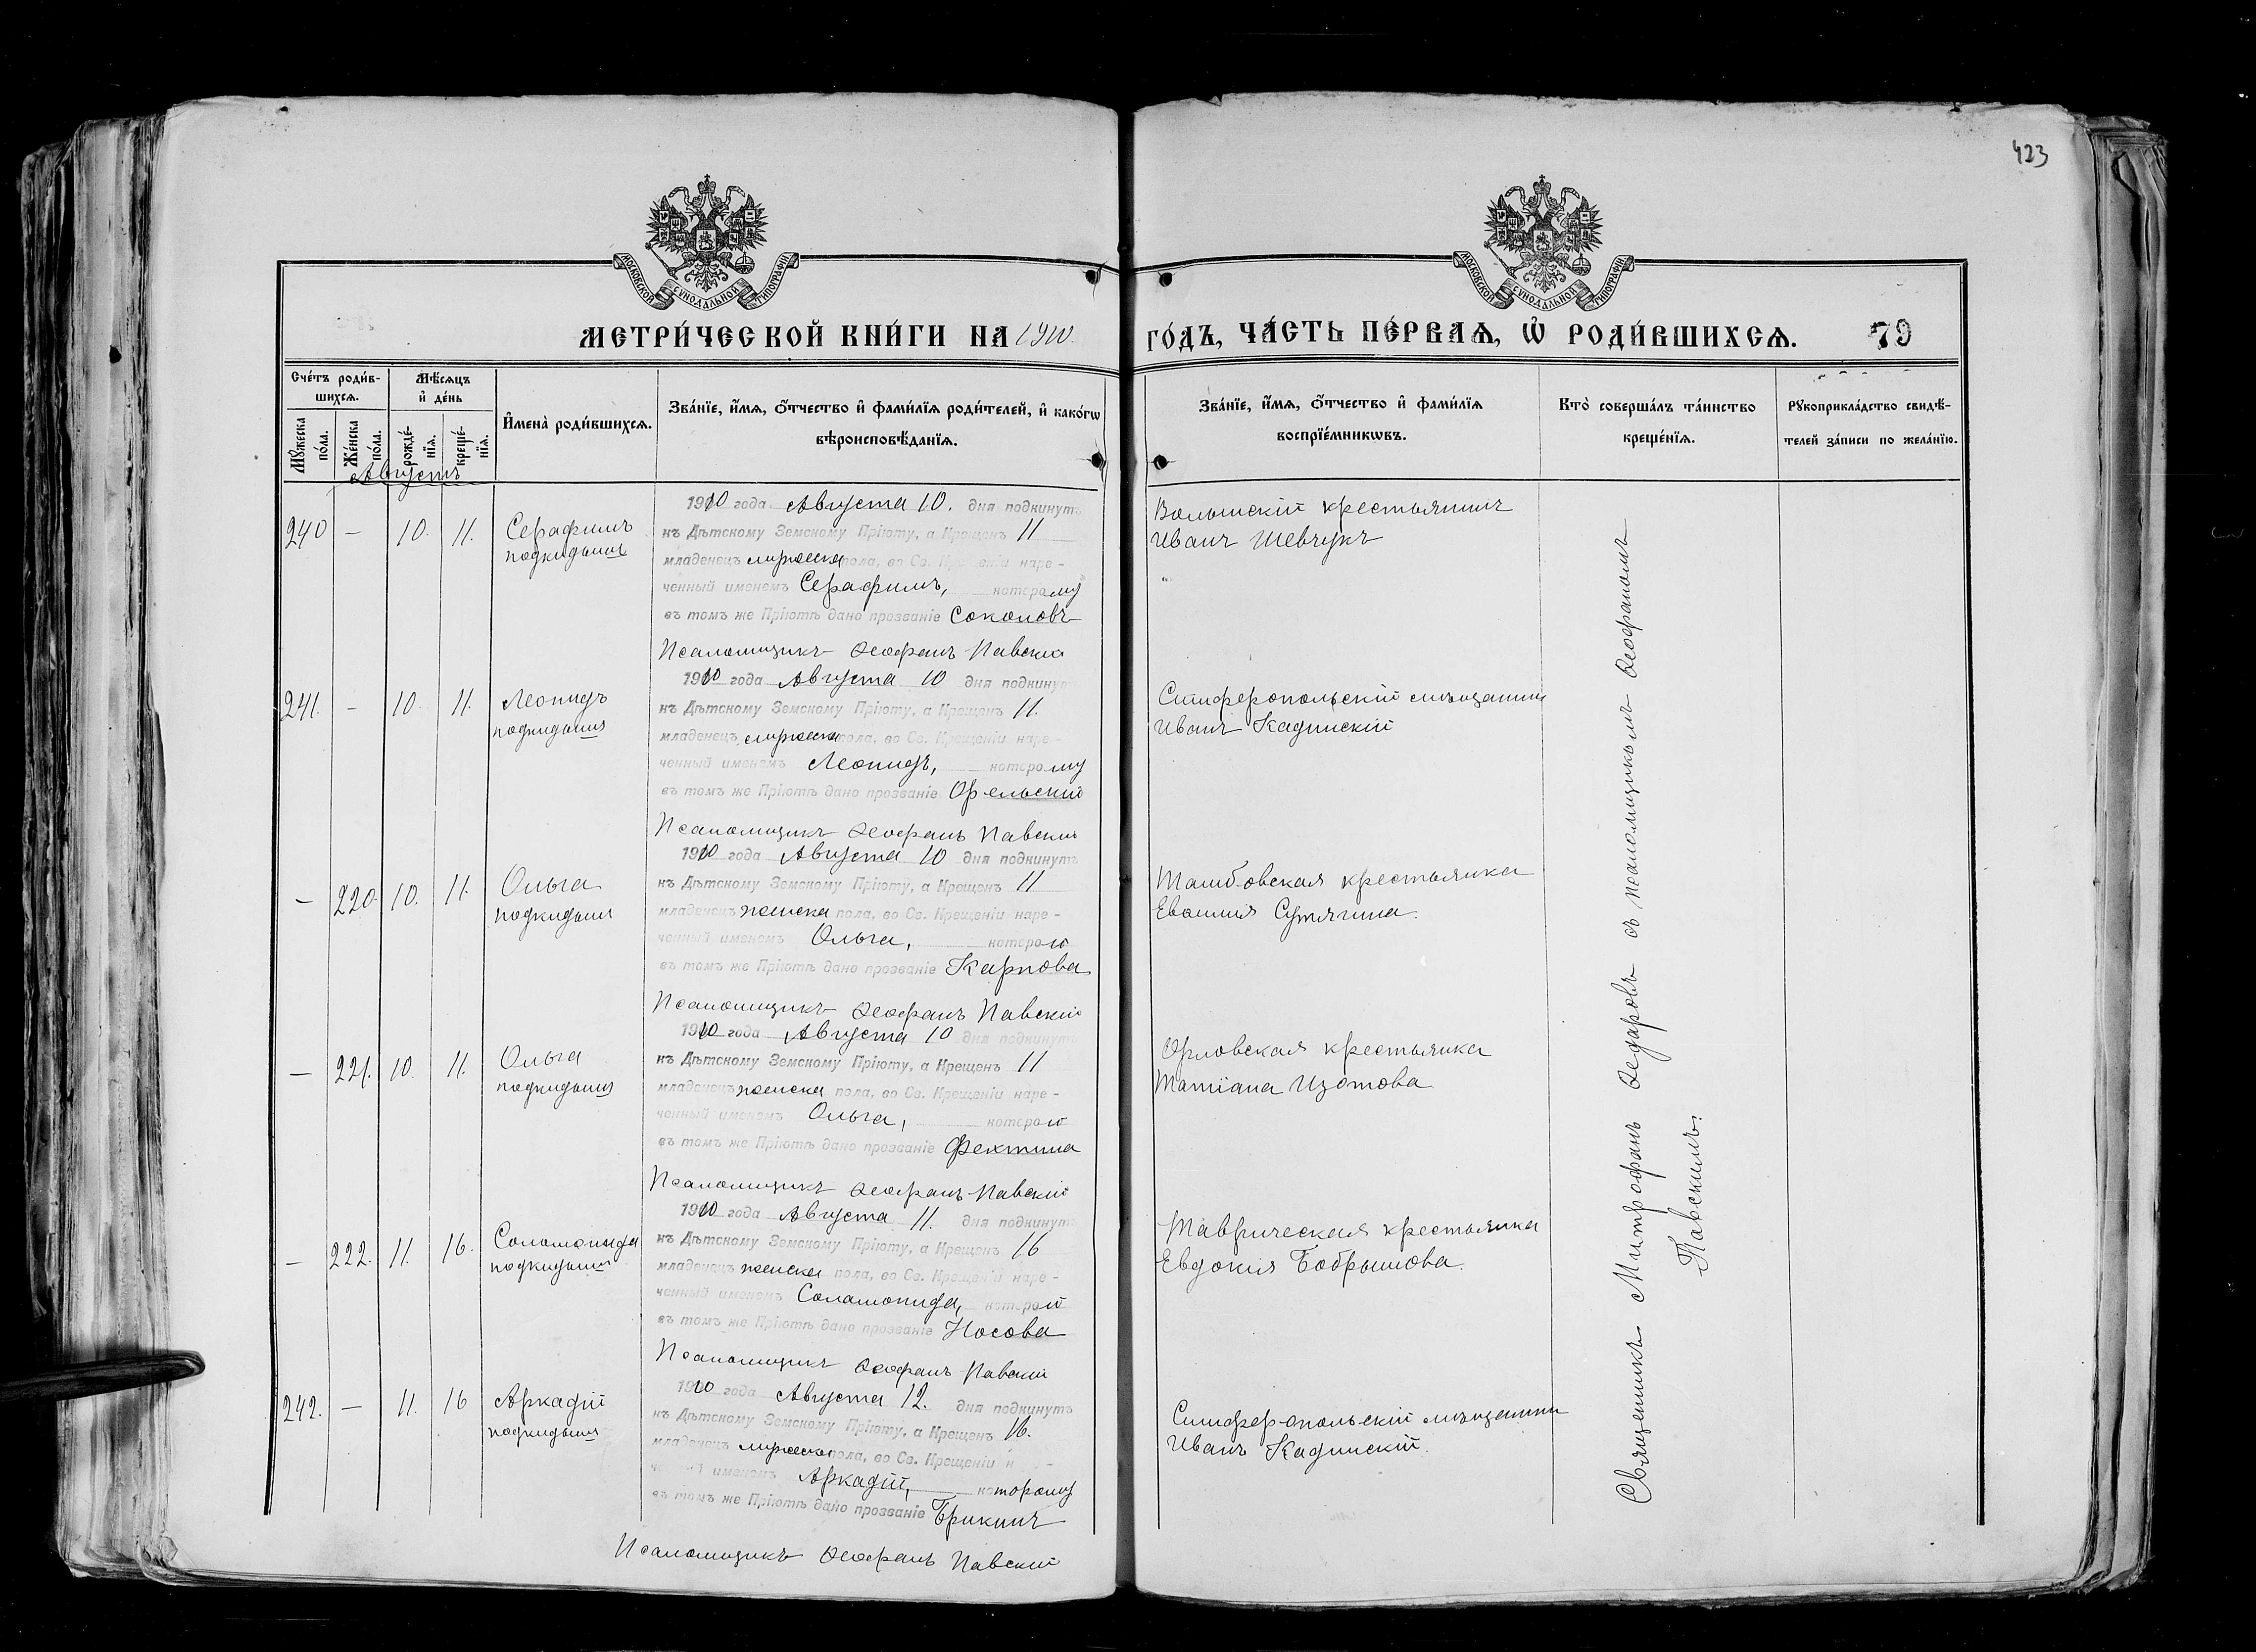 423
МОСКОВСКОЙ СѴНОДАЛЬНОЙ ТИПОГРАФІИ
МОСКОВСКОЙ СѴНОДАЛЬНОЙ ТИПОГРАФІИ
МЕТРИ́ЧЕСКОЙ КНИ́ГИ НА 1910
ГО́ДЪ, ЧА́СТЬ ПЕ́РВАЯ, Ѡ҆ РОДИ́ВШИХСЯ. 79
Сче́тъ роди́в-
шихсѧ.
Мꙋ́жеска по́ла.
Же́нска по́ла.
Мѣ́сѧцъ
и҆ де́нь
рожде́-
нїѧ.
креще́-
нїѧ.
И҆мена̀ роди́вшихсѧ.
Зва́нїе, и҆́мѧ, ѻ҆́тчество и҆ фами́лїѧ роди́телей, и҆ како́гѡ
вѣроисповѣ́данїѧ.
Зва́нїе, и҆́мѧ, ѻ҆́тчество и҆ фами́лїѧ
воспрїе́мникѡвъ.
Кто̀ соверша́лъ та́инство
креще́нїѧ.
Рꙋкоприкла́дство свидѣ́-
телей за́писи по жела́нїю.
Августъ
240 — 10. 11. Серафимъ
подкидышъ
1910 года Августа 10. дня подкинутъ
къ Дѣтскому Земскому Пріюту, а Крещенъ 11
младенецъ мужеска пола, во Св. Крещеніи наре-
ченный именемъ Серафимъ, которому
въ томъ же Пріютѣ дано прозваніе Соколовъ
Псаломщикъ Ѳеофанъ Павскій
Волынскій крестьянинъ
Иванъ Шевчукъ
241. — 10. 11. Леонидъ
подкидышъ
1910 года Августа 10 дня подкинутъ
къ Дѣтскому Земскому Пріюту, а Крещенъ 11.
младенецъ мужеска пола, во Св. Крещеніи наре-
ченный именемъ Леонидъ, которому
въ томъ же Пріютѣ дано прозваніе Орельскій
Псаломщикъ Ѳеофанъ Павскій
Симферопольскій мѣщанинъ
Иванъ Кадинскій
— 220. 10. 11. Ольга
подкидышъ
1910 года Августа 10 дня подкинутъ
къ Дѣтскому Земскому Пріюту, а Крещенъ 11
младенецъ женска пола, во Св. Крещеніи наре-
ченный именемъ Ольга, которой
въ томъ же Пріютѣ дано прозваніе Карпова
Псаломщикъ Ѳеофанъ Павскій
Тамбовская крестьянка
Сутягина.
— 221. 10. 11. Ольга
подкидышъ
1910 года Августа 10 дня подкинутъ
къ Дѣтскому Земскому Пріюту, а Крещенъ 11
младенецъ женска пола, во Св. Крещеніи наре-
ченный именемъ Ольга, которой
въ томъ же Пріютѣ дано прозваніе Фехтина
Псаломщикъ Ѳеофанъ Павскій
Орловская крестьянка
Татіана Изотова
— 222. 11. 16. Соломонида
подкидышъ
1910 года Августа 11. дня подкинутъ
къ Дѣтскому Земскому Пріюту, а Крещенъ 16
младенецъ женска пола, во Св. Крещеніи наре-
ченный именемъ Соломонида, которой
въ томъ же Пріютѣ дано прозваніе Носова
Псаломщикъ Ѳеофанъ Павскій
Таврическая крестьянка
Евдокія Бобрышова.
242. — 11. 16 Аркадій
подкидышъ
1910 года Августа 12. дня подкинутъ
къ Дѣтскому Земскому Пріюту, а Крещенъ 16.
младенецъ мужеска пола, во Св. Крещеніи н -
ченный именемъ Аркадій, которому
въ томъ же Пріютѣ дано прозваніе Брикинъ
Псаломщикъ Ѳеофанъ Павскій
Симферопольскій мѣщанинъ
Иванъ Кадинскій.
Священникъ Митрофанъ Ѳедоровъ съ псаломщикомъ Ѳеофаномъ
Павскимъ.